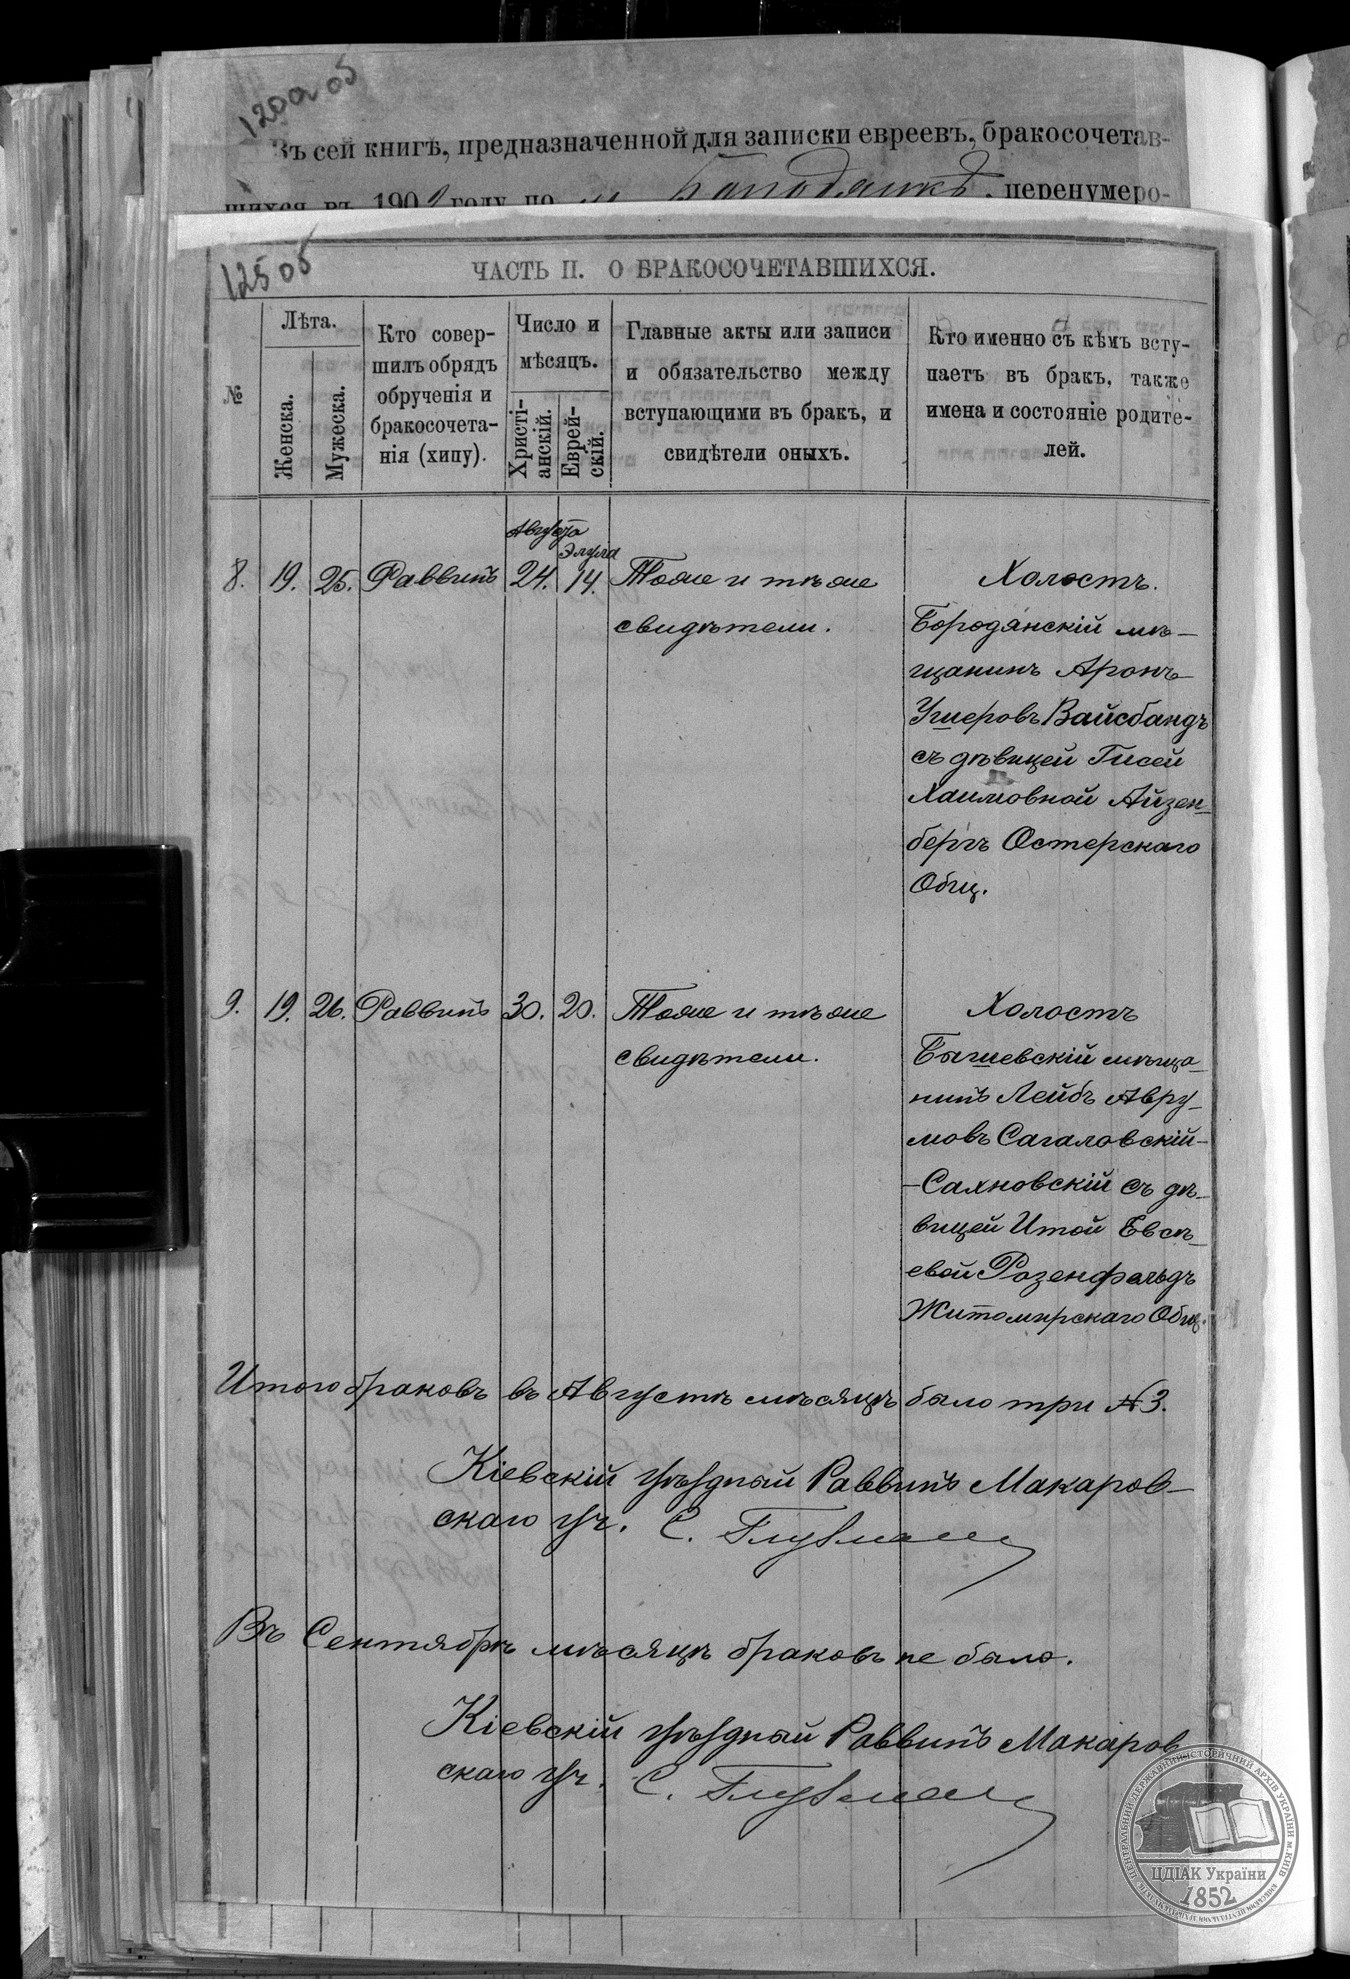 120а об
Въ сей книгѣ, предназначенной для записки евреевъ, бракосочетав-
шихся въ 190 году по м. Бородянкѣ, перенумеро-
125 об
ЧАСТЬ II. О БРАКОСОЧЕТАВШИХСЯ.
№
Лѣта.
Женска.
Мужеска.
Кто совер-
шилъ обрядъ
обрученія и
бракосочета-
нія (хипу).
Число и
мѣсяцъ.
Христі-
анскій.
Еврей-
скій.
Главные акты или записи
и обязательство между
вступающими въ бракъ, и
свидѣтели оныхъ.
Кто именно съ кѣмъ всту-
паетъ въ бракъ, также
имена и состояніе родите-
лей.
Августа
Элула
8. 19. 25. Раввинъ 24. 14. Тоже и тѣ же
свидѣтели.
Холостъ.
Бородянскій мѣ-
щанинъ Аронъ
Ушеровъ Вайсбандъ
съ дѣвицей Гисей
Хаимовной Айзен-
бергъ Остерскаго
Общ.
9. 19. 26. Раввинъ 30. 20. Тоже и тѣ же
свидѣтели.
Холостъ
Бышевскій мѣща-
нинъ Лейбъ Авру-
мовъ Сагаловскій-
-Сахновскій съ дѣ-
вицей Итой Евсѣ-
евой Розенфельдъ
Житомирскаго Общ.
Итого браковъ въ Августѣ мѣсяцѣ было три № 3.
Кіевскій уѣздный Раввинъ Макаров-
скаго уч. С. Глузман
Въ Сентябрѣ мѣсяцѣ браковъ не было.
Кіевскій уѣздный Раввинъ Макаров
скаго уч. С. Глузман
ЦЕНТРАЛЬНИЙ ДЕРЖАВНИЙ ІСТОРИЧНИЙ АРХІВ УКРАЇНИ м. КИЇВ
ЦДІАК України
1852